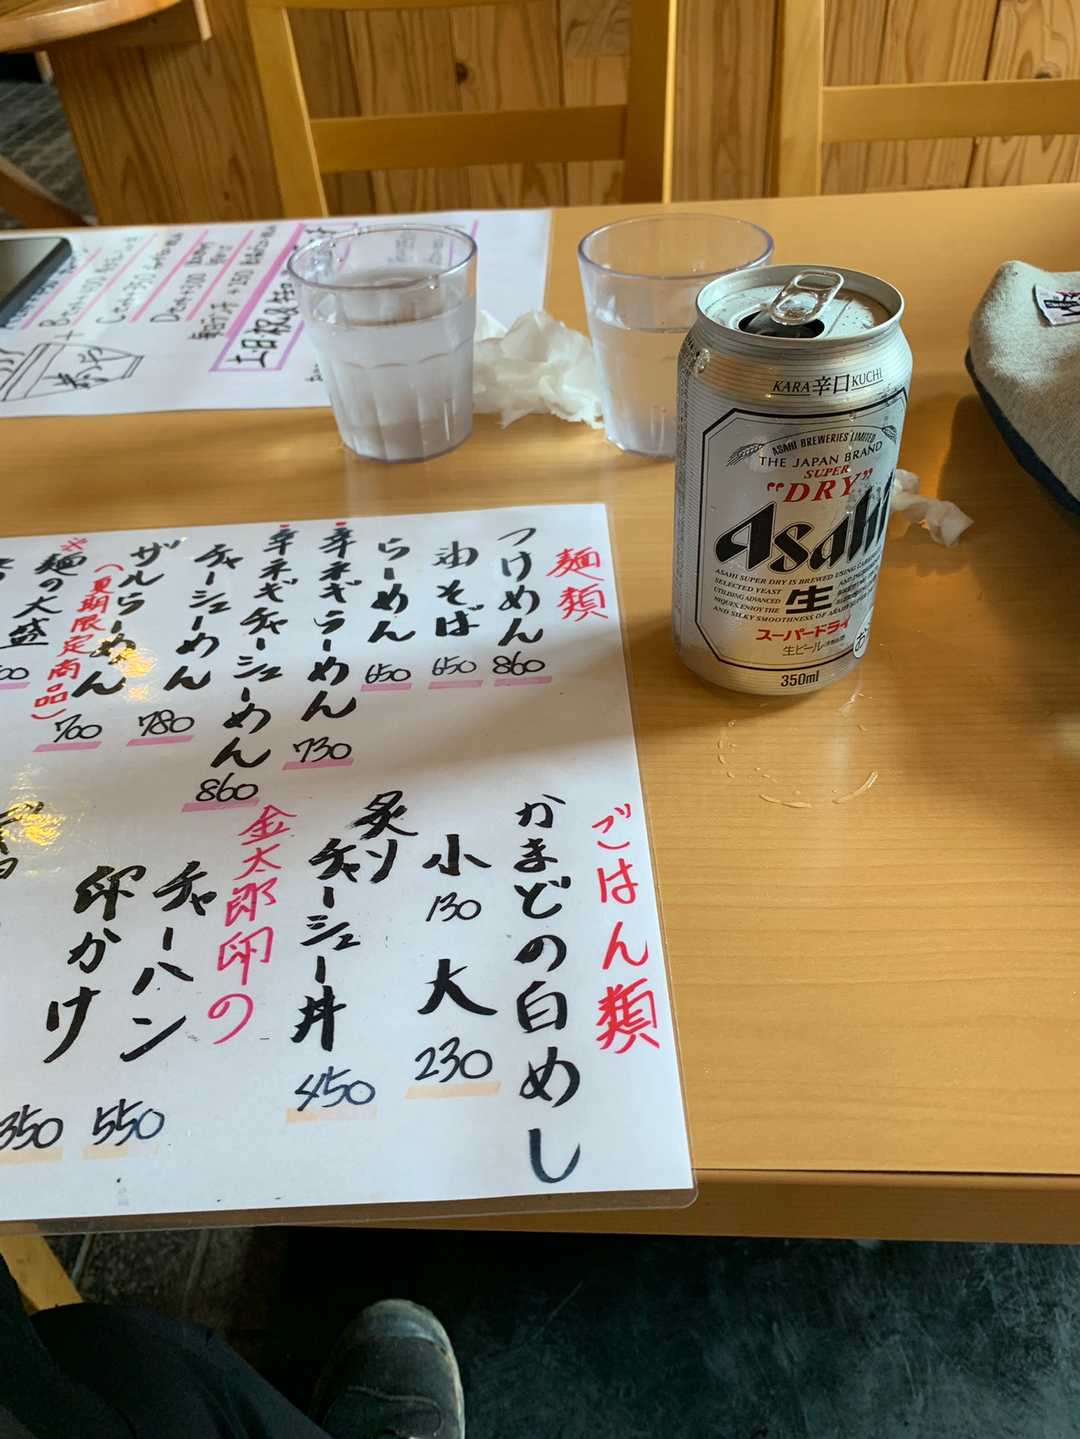 麺類
つけめん 860
油そば 650
らーめん 650
辛ネギらーめん 730
辛ネギチャーシューめん 860
チャーシューめん 780
ザルらーめん 700
(夏期限定商品)
※麺の大盛
ごはん類
かまどの白めし
小 130
大 230
炙りチャーシュー丼 450
金太郎卵の
チャーハン 550
卵かけ
350
KARA 辛口 KUCHI
ASAHI BREWERIES LIMITED
THE JAPAN BRAND
SUPER
"DRY"
Asahi
ASAHI SUPER DRY IS BREWED USING
SELECTED YEAST
UTILISING ADVANCED
NIQUES. ENJOY THE
AND SILKY SMOOTHNESS OF
生
スーパードライ
生ビール
350ml